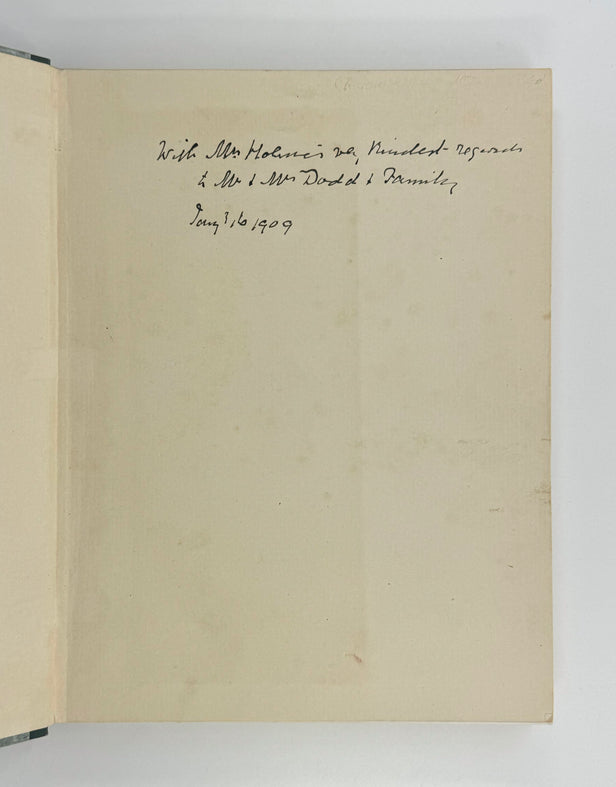 With Mrs Holmes's very kindest regards
to Mr & Mrs Dodd & Family
Jany 16 1909